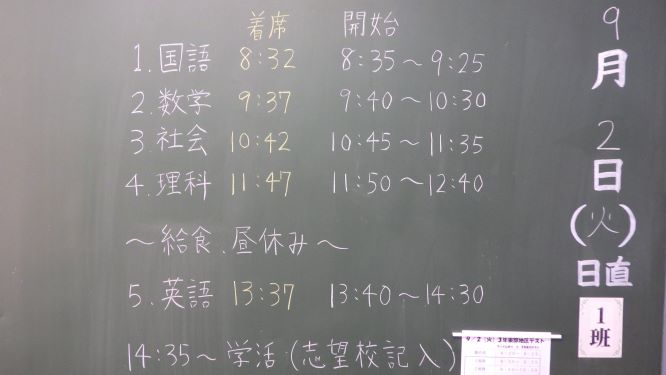 着席 開始
1.国語 8:32 8:35～9:25
2.数学 9:37 9:40～10:30
3.社会 10:42 10:45～11:35
4.理科 11:47 11:50～12:40
～給食、昼休み～
5.英語 13:37 13:40～14:30
14:35～学活(志望校記入)
9月2日(火)
日直
1班